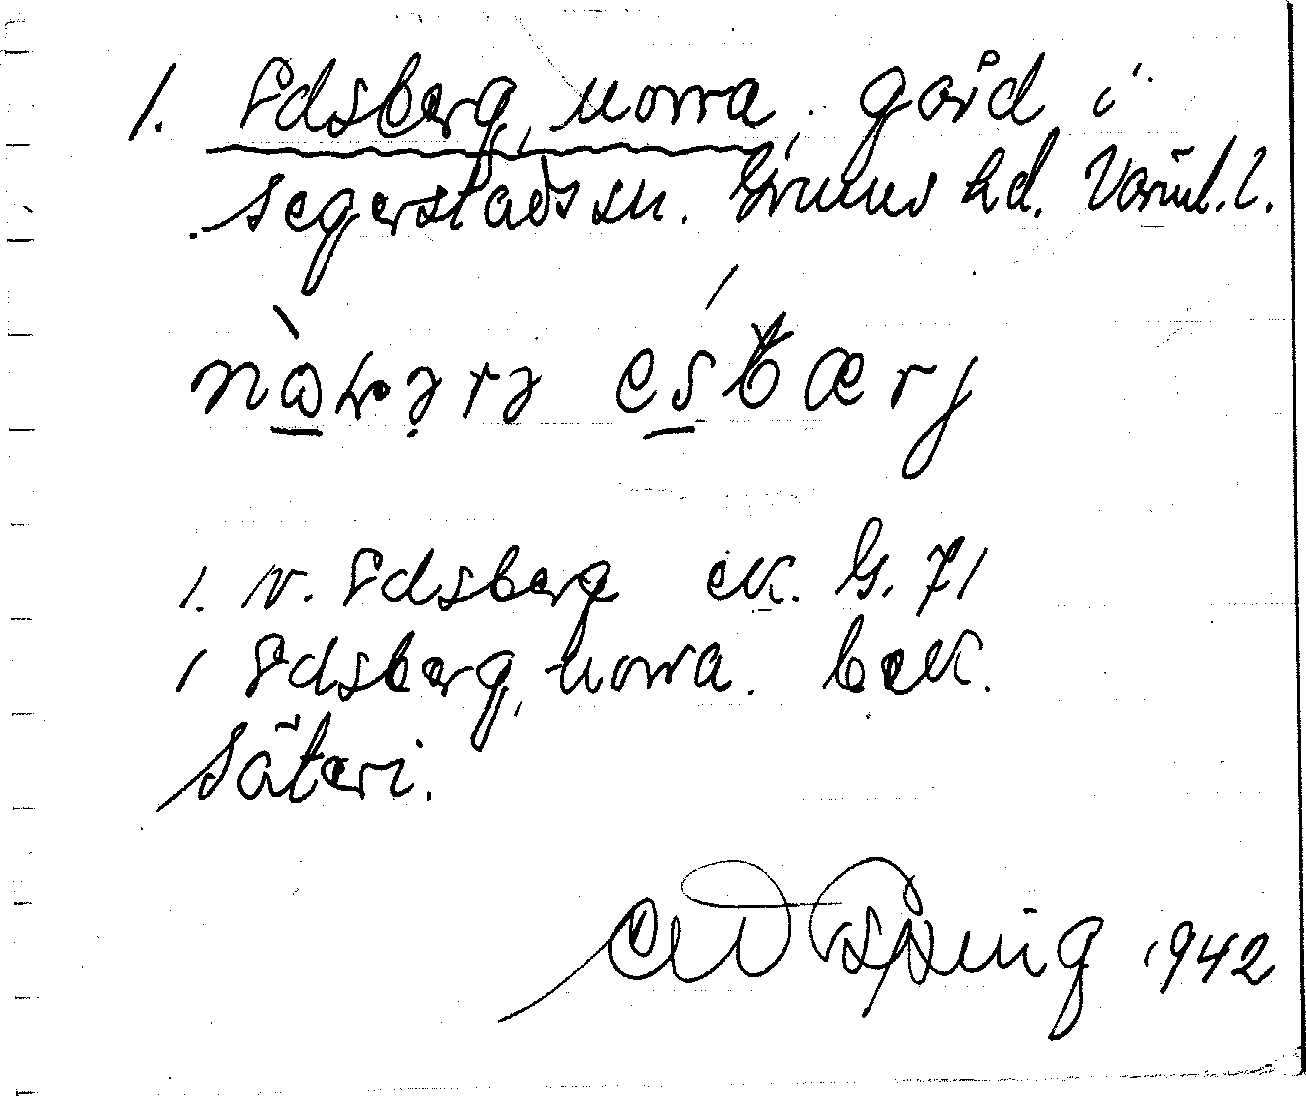 1. Edsberg, norra, gård i
Segerstads sn. Grums hd. Värml. l.
1. N. Edsberg ek. G. 71
1 Edsberg, norra. bek.
Säteri.
1942